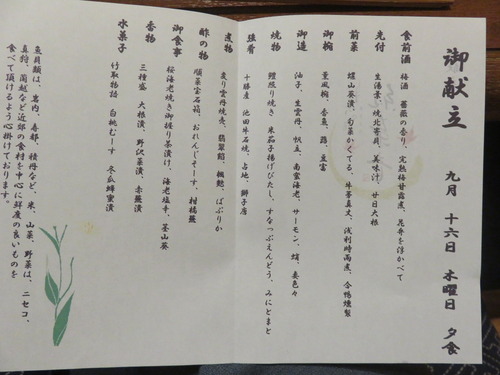 御献立 九月 十六日 木曜日 夕食
食前酒 梅酒 薔薇の香り、完熟梅甘露煮、花弁を浮かべて
先付 生湯葉、焼北寄貝、美味汁、廿日大根
前菜 螺山葵漬、旬菜かくてる、牛蒡真丈、浅利時雨煮、合鴨燻製
御椀 薫風椀、香魚、蕗、豆富
御造 油子、生雲丹、帆立、南蛮海老、サーモン、蛸、妻色々
焼物 鰻照り焼き 米茄子揚げびたし、すなっぷえんどう、みにとまと
強肴 十勝産 池田牛石焼、占地、獅子唐
煮物 炙り雲丹焼売、翡翠餡、楓麩、ぱぷりか
酢の物 順菜宝石箱、おれんじそーす、柑橘醬
御食事 桜海老焼き御握り茶漬け、海老塩辛、茎山葵
香物 三種盛 大根漬、野沢菜漬、赤蕪漬
水菓子 竹取物語 白桃むーす 冬瓜蜂蜜漬
魚貝類は、岩内、寿都、積丹など、米、山菜、野菜は、ニセコ、
真狩、蘭越など近郊の食材を中心に鮮度の良いものを
食べて頂けるよう心掛けております。